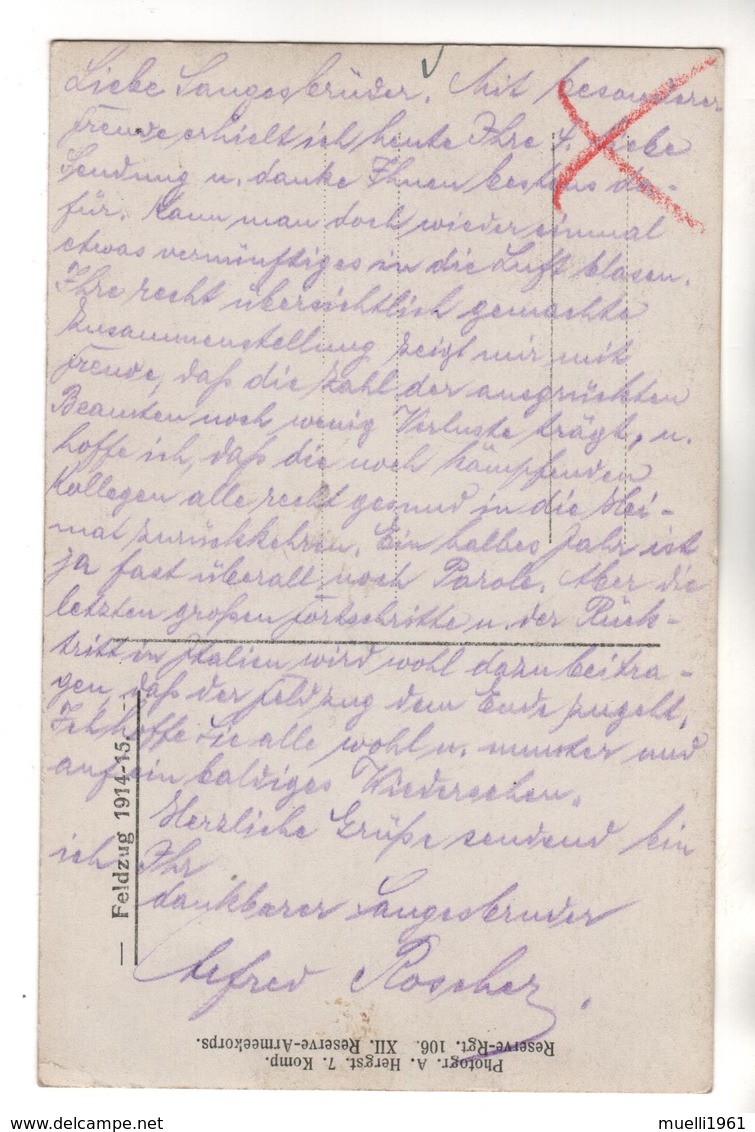 Liebe Sangesbrüder. Mit besonderer
Freude erhielt ich heute Ihre 4. Liebe
Sendung u. danke Ihnen bestens da-
für. Kann man doch wieder einmal
etwas vernünftiges in die Luft blasen.
Ihre recht übersichtlich gemachte
Zusammenstellung zeigt mir mit
Freude, daß die Zahl der ausgrückten
Beamten noch wenig Verluste trägt, u.
hoffe ich, daß die noch kämpfenden
Kollegen alle recht gesund in die Hei-
mat zurückkehren. Ein halbes Jahr ist
ja fast überall noch Parole. Aber die
letzten großen Fortschritte u. der Rück-
tritt in Italien wird wohl dazu beitra-
gen, daß der Feldzug dem Ende zugeht.
Ich hoffe Sie alle wohl u. munter und
auf ein baldiges Wiedersehen.
Herzliche Grüße sendend bin
ich Ihr
dankbarer Sangesbruder
Alfred Roscher.
— Feldzug 1914-15. —
Photogr. A. Hergst. 7. Komp.
Reserve-Rgt. 106. XII. Reserve-Armeekorps.
muelli1961